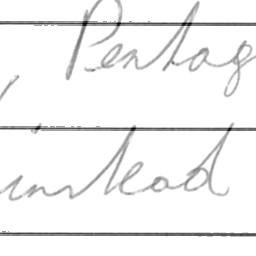 , Pentag
instead